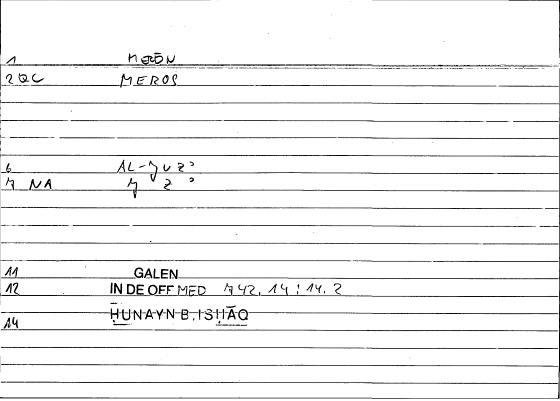 1 MERŌN
2 QC MEROS
6 AL-JUZʾ
7 NA J Z ʾ
11 GALEN
12 IN DE OFF MED 742, 14 : 14, 2
14 ḤUNAYN B. ISḤĀQ